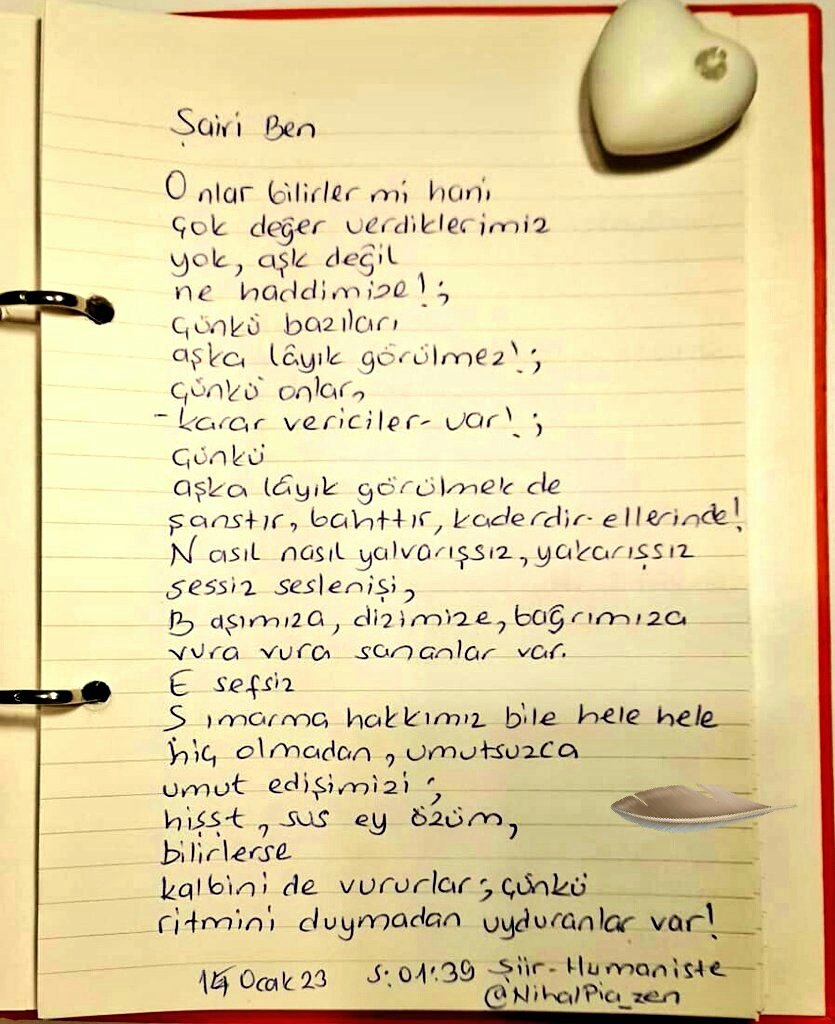 Şairi Ben
Onlar bilirler mi hani
çok değer verdiklerimiz
yok, aşk değil
ne haddimize!;
çünkü bazıları
aşka lâyık görülmez!;
çünkü onlar,
-karar vericiler- var!;
çünkü
aşka lâyık görülmek de
şanstır, bahttır, kaderdir-ellerinde!
Nasıl nasıl yalvarışsız, yakarışsız
sessiz seslenişi,
Başımıza, dizimize, bağrımıza
vura vura sananlar var.
Esefsiz
Sımarma hakkımız bile hele hele
hiç olmadan, umutsuzca
umut edişimizi;
hişşt, sus ey özüm,
bilirlerse
kalbini de vururlar; çünkü
ritmini duymadan uyduranlar var!
14 Ocak 23 S:01:39 Şiir-Humaniste
@NihalPia_zen